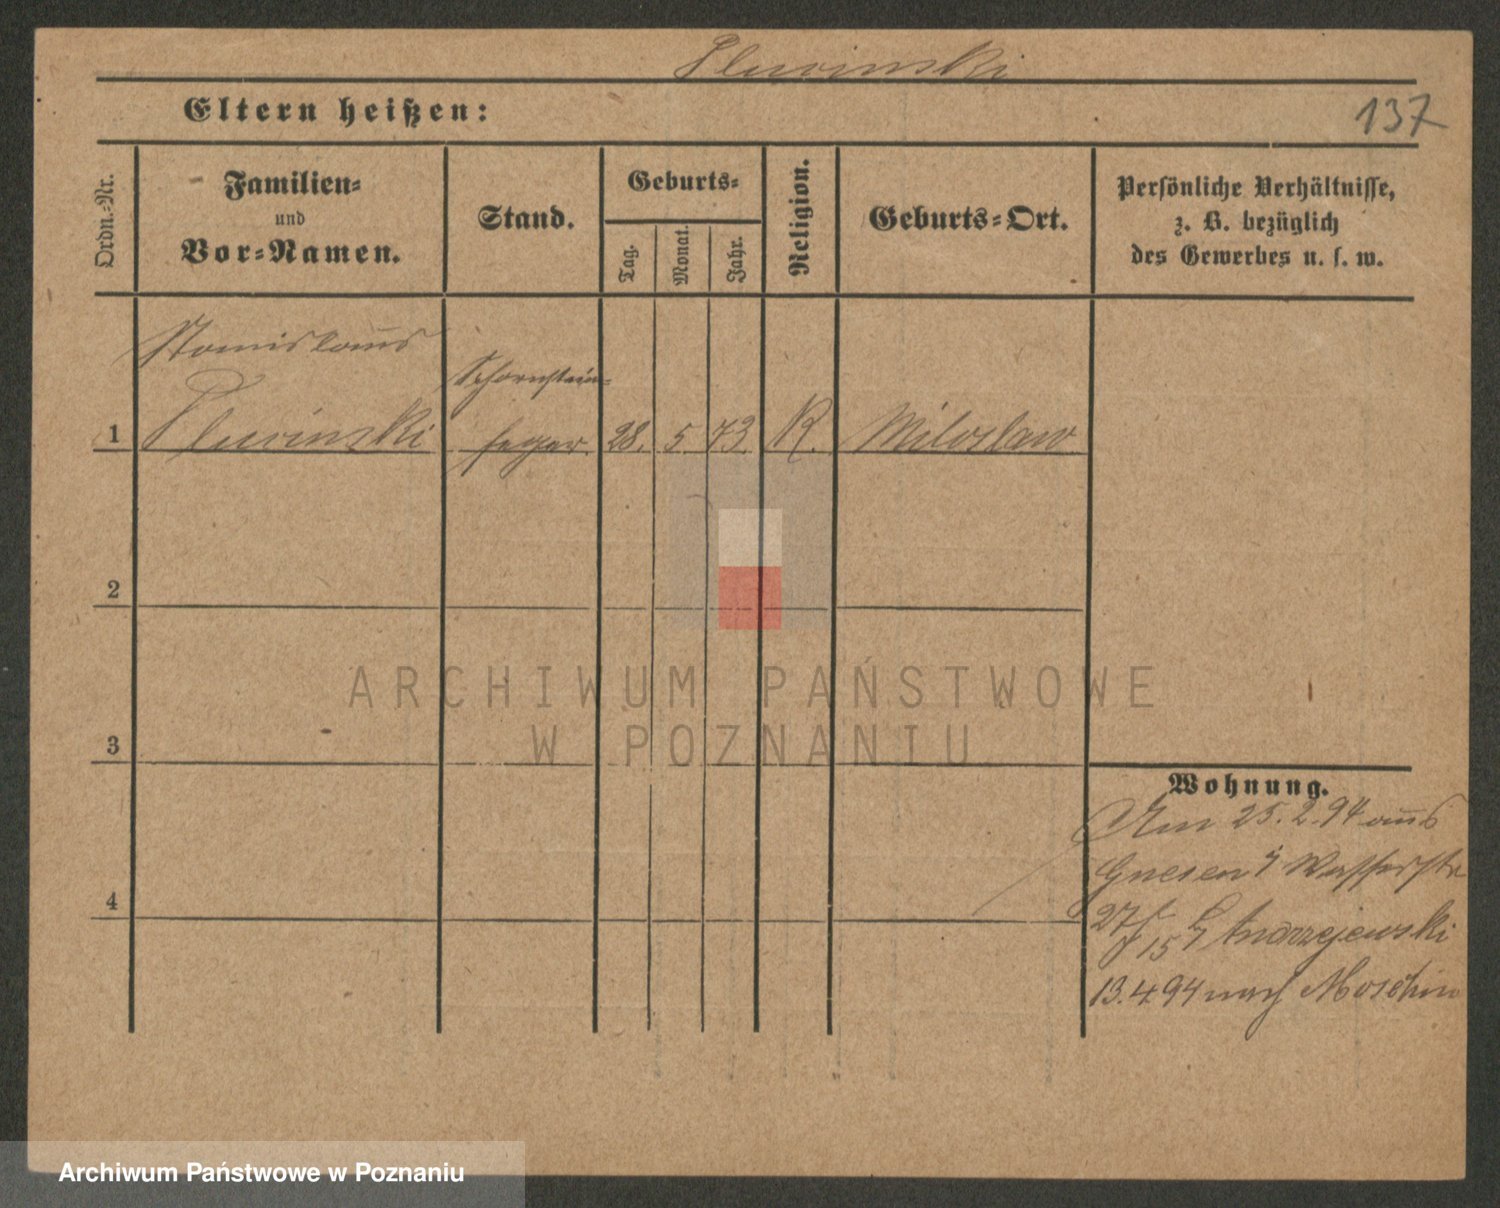 Pluvinski
Eltern heißen:
137
Ordn.-Nr.
Familien-
und
Vor-Namen.
Stand.
Geburts-
Tag.
Monat.
Jahr.
Religion.
Geburts-Ort.
Persönliche Verhältnisse,
z. B. bezüglich
des Gewerbes u. s. w.
Stanislaus
Schornstein-
1 Pluvinski feger 28. 5. 73. K. Miloslaw
2
3
4
Wohnung.
Am 25.2.94 aus
Gnesen Wasserstr
27 15 Andrzejewski
13.4.94 nach Moschin
ARCHIWUM PAŃSTWOWE
W POZNANIU
Archiwum Państwowe w Poznaniu